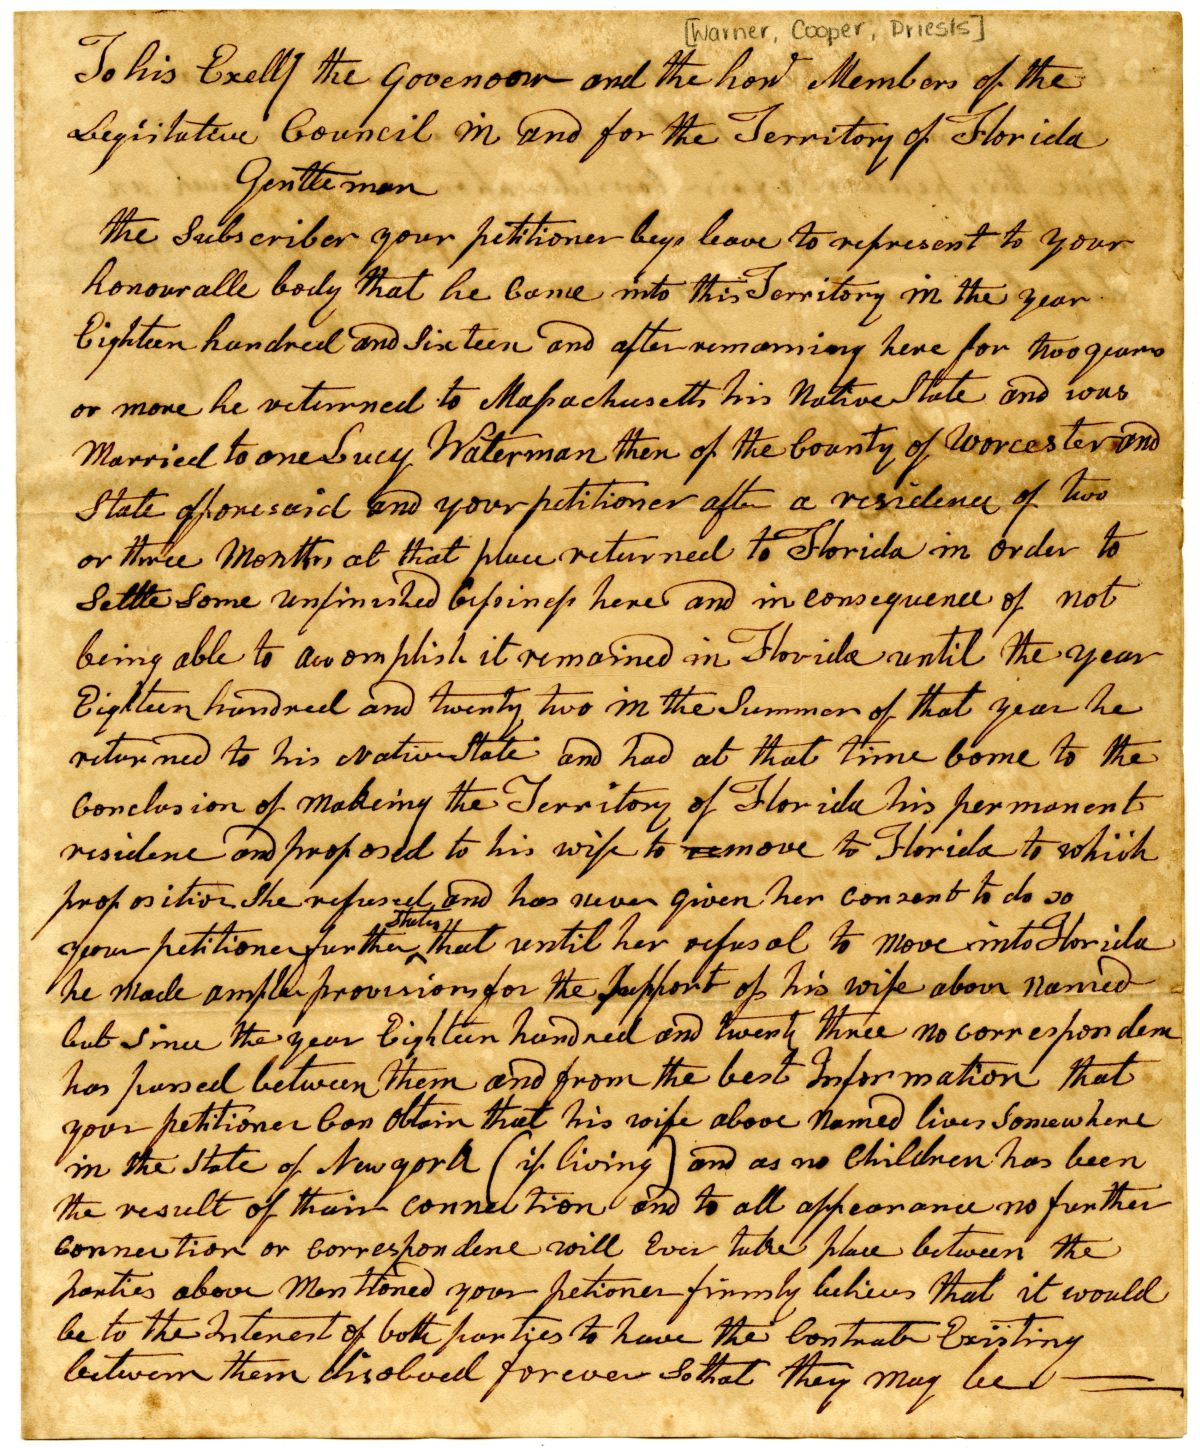 [Warner, Cooper, Priests]
To his Exelly the Govenoor and the hond Members of the
Legislative Council in and for the Territory of Florida
Gentleman
the Subscriber your petitioner begs leave to represent to your
honouralle body that he Came into this Territory in the year
Eighteen hundred and Sixteen and after remaming here for two years
or more he returned to Massachusetts his Native State and was
Married to one Lucy Waterman then of the County of Worcester and
State afforesaid and your petitioner after a residence of two
or three Months at that place returned to Florida in order to
Settle Some unfinished bissiness here and in consequence of not
being able to accomplish it remained in Florida until the year
Eighteen hundred and twenty two in the Summer of that year he
returned to his Native State and had at that time Come to the
Conclusion of Makeing the Territory of Florida his permanent
residene and proposed to his wife to remove to Florida to which
proposition She refused and has never given her Consent to do so
your petitioner further States that until her refusal to move into Florida
he Made ample provisions for the Support of his wife above Named
but Since the year Eighteen hundred and twenty three no correspondene
has passed between them and from the best Information that
your petitioner Can Obtain that his wife above Named lives Somewhere
in the State of New york (if living) and as no Children has been
the result of thair Connection and to all appearance no further
Connection or Correspondene will Ever take place between the
parties above Mentioned your petioner firmly believes that it would
be to the Interest of both parties to have the Contrate Existing
between them disolved forever So that they may be